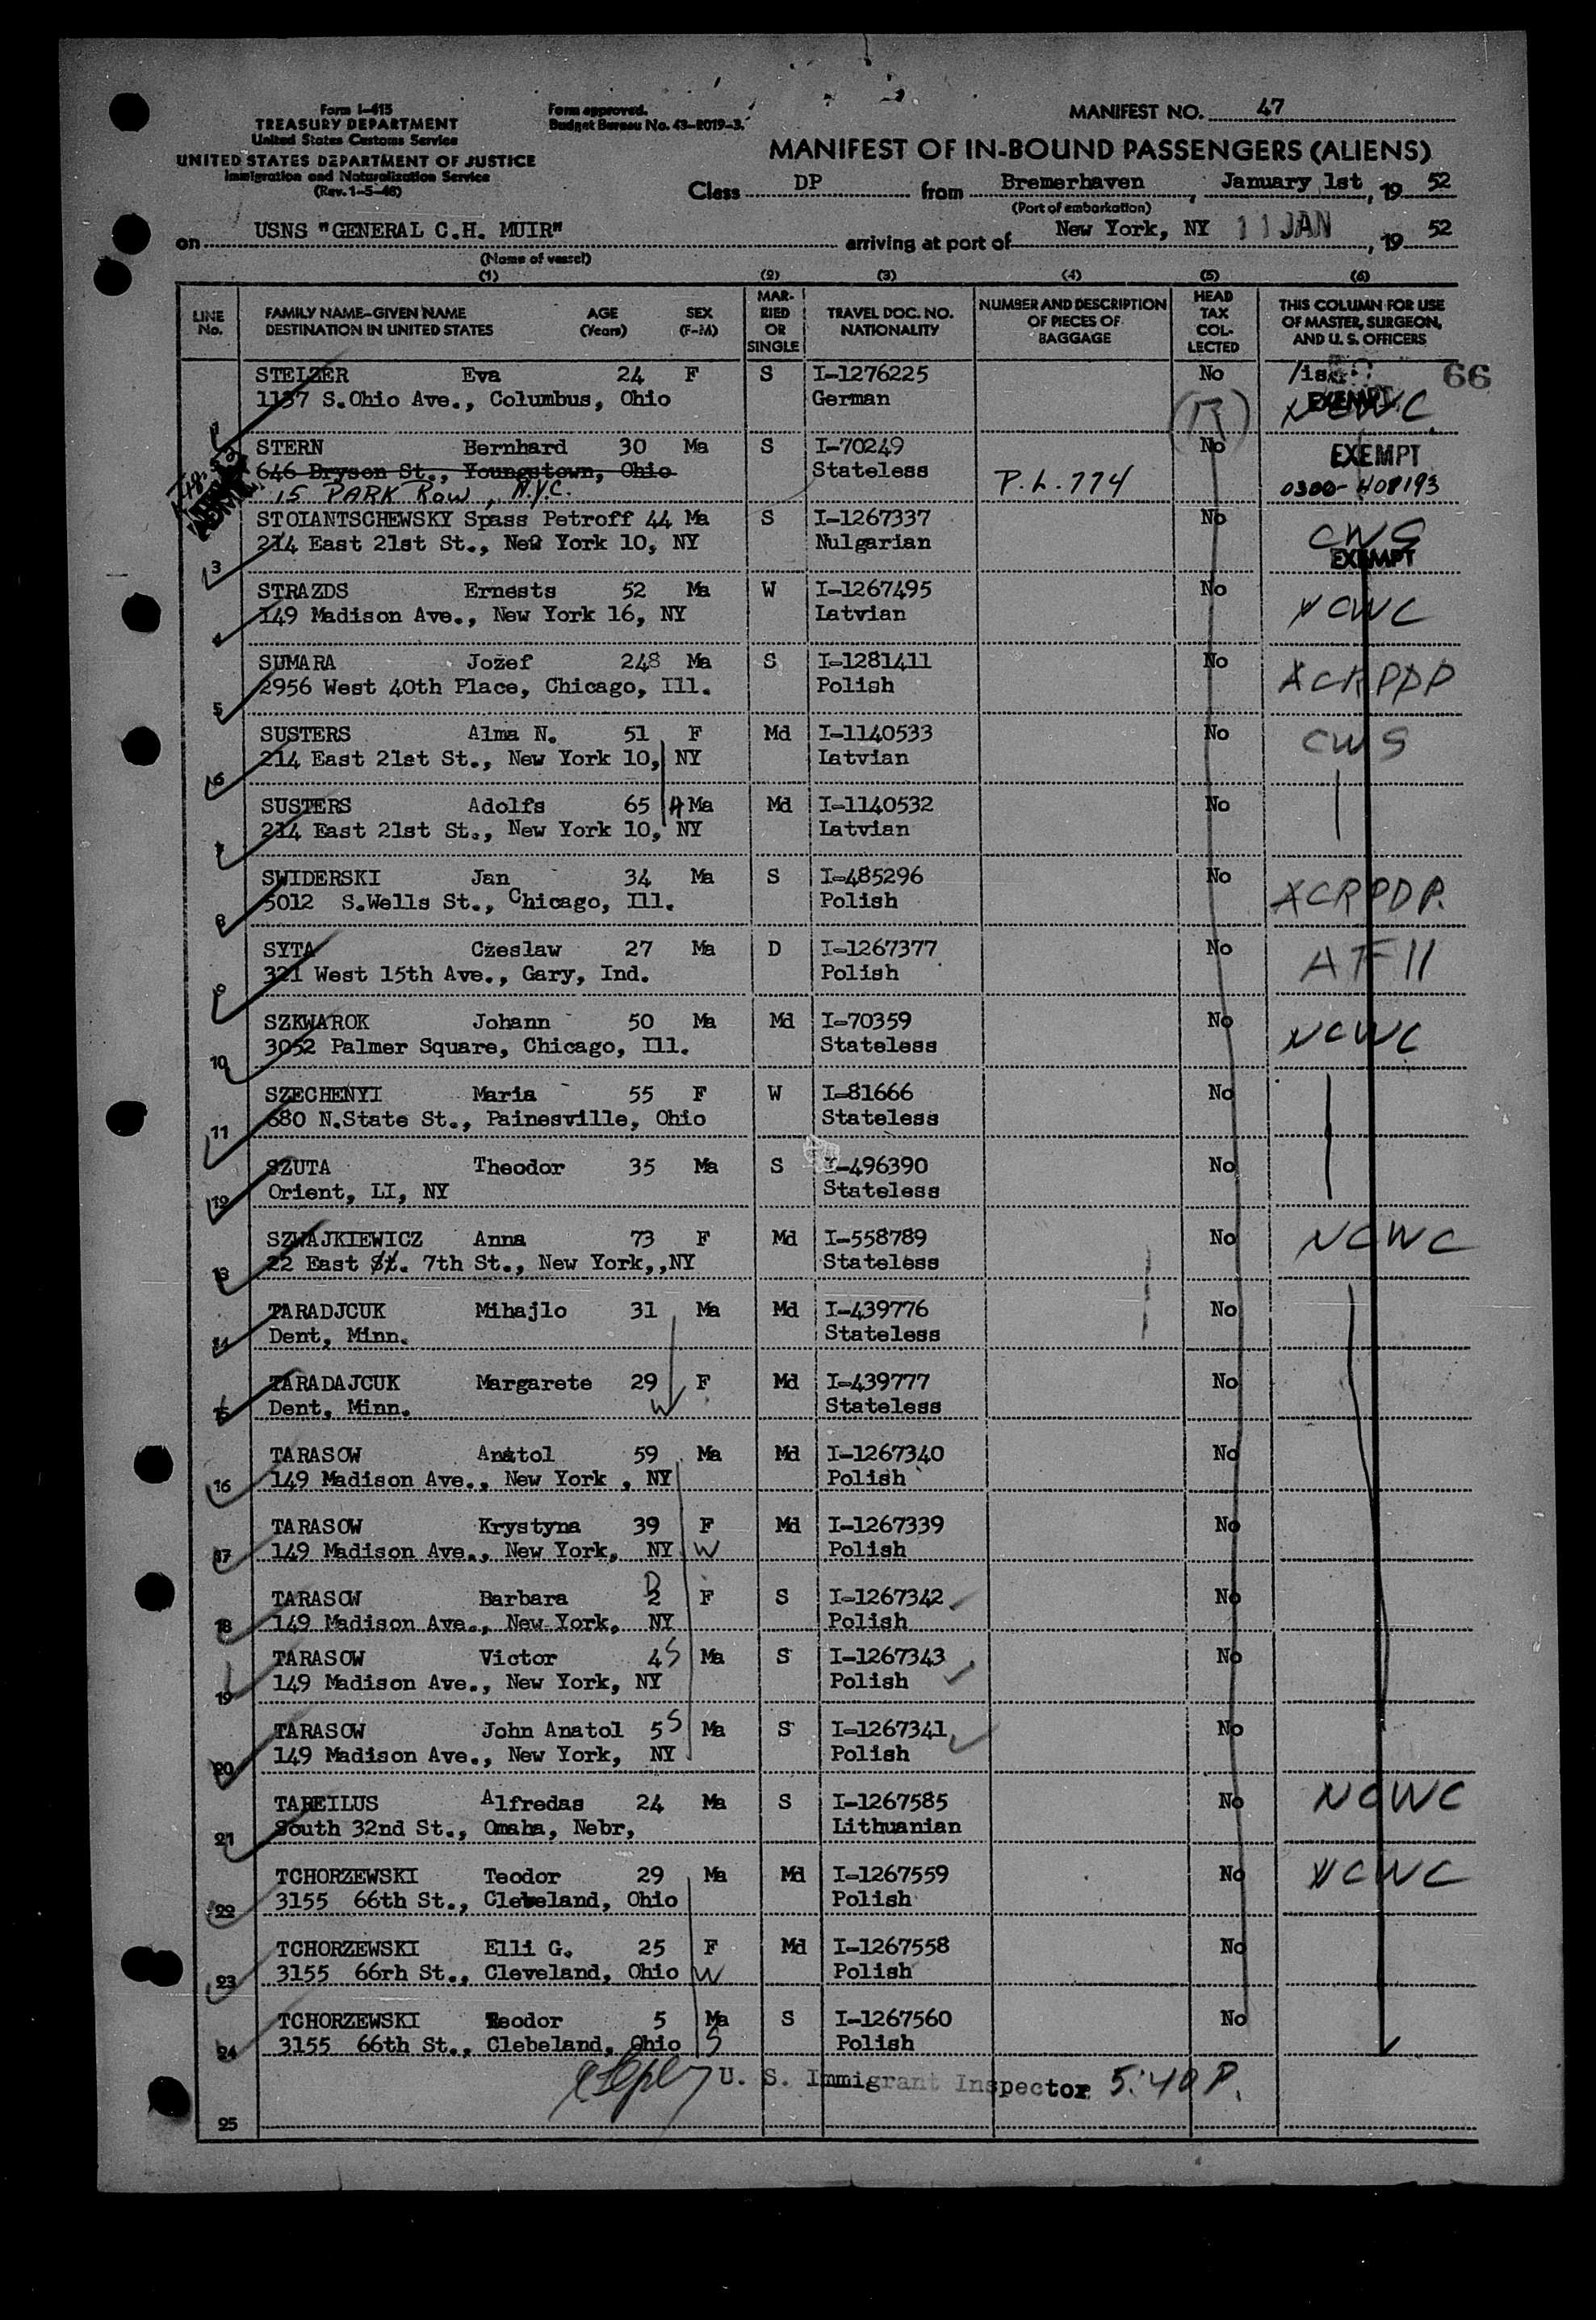 Form I-415
TREASURY DEPARTMENT
United States Customs Service
UNITED STATES DEPARTMENT OF JUSTICE
Immigration and Naturalization Service
(Rev. 1-5-48)
Form approved.
Budget Bureau No. 43-R019-3.
MANIFEST NO. 47
MANIFEST OF IN-BOUND PASSENGERS (ALIENS)
Class DP from Bremerhaven, January 1st, 19 52
(Port of embarkation)
on USNS "GENERAL C.H. MUIR" arriving at port of New York, NY 11 JAN, 19 52
(Name of vessel)
(1) (2) (3) (4) (5) (6)
LINE No. FAMILY NAME-GIVEN NAME DESTINATION IN UNITED STATES AGE (Years) SEX (F-M) MARRIED OR SINGLE TRAVEL DOC. NO. NATIONALITY NUMBER AND DESCRIPTION OF PIECES OF BAGGAGE HEAD TAX COLLECTED THIS COLUMN FOR USE OF MASTER, SURGEON, AND U. S. OFFICERS
STELZER Eva 24 F S I-1276225 No 66
1137 S.Ohio Ave., Columbus, Ohio German (R) EXEMPT NCWC
1
STERN Bernhard 30 Ma S I-70249 No EXEMPT
646 Bryson St., Youngstown, Ohio Stateless P.L. 774
15 PARK ROW, N.Y.C. 0300-408193
STOIANTSCHEWSKY Spass Petroff 44 Ma S I-1267337 No CWS
214 East 21st St., New York 10, NY Nulgarian EXEMPT
3
STRAZDS Ernests 52 Ma W I-1267495 No
149 Madison Ave., New York 16, NY Latvian NCWC
4
SUMARA Jozef 248 Ma S I-1281411 No
2956 West 40th Place, Chicago, Ill. Polish
5
SUSTERS Alma N. 51 F Md I-1140533 No CWS
214 East 21st St., New York 10, NY Latvian
6
SUSTERS Adolfs 65 H Ma Md I-1140532 No
214 East 21st St., New York 10, NY Latvian
7
SWIDERSKI Jan 34 Ma S I-485296 No
5012 S.Wells St., Chicago, Ill. Polish
8
SYTA Czeslaw 27 Ma D I-1267377 No
321 West 15th Ave., Gary, Ind. Polish
9
SZKWAROK Johann 50 Ma Md I-70359 No
3052 Palmer Square, Chicago, Ill. Stateless NCWC
10
SZECHENYI Maria 55 F W I-81666 No
680 N.State St., Painesville, Ohio Stateless
11
SZUTA Theodor 35 Ma S I-496390 No
Orient, LI, NY Stateless
12
SZWAJKIEWICZ Anna 73 F Md I-558789 No NCWC
22 East St. 7th St., New York,,NY Stateless
13
TARADJCUK Mihajlo 31 Ma Md I-439776 No
Dent, Minn. Stateless
14
TARADAJCUK Margarete 29 F Md I-439777 No
Dent, Minn. W Stateless
15
TARASOW Anatol 59 Ma Md I-1267340 No
16 149 Madison Ave., New York , NY Polish
TARASOW Krystyna 39 F Md I-1267339 No
17 149 Madison Ave., New York, NY W Polish
TARASOW Barbara D 2 F S I-1267342 No
18 149 Madison Ave., New York, NY Polish
TARASOW Victor 4 S Ma S I-1267343 No
19 149 Madison Ave., New York, NY Polish
TARASOW John Anatol 5 S Ma S I-1267341 No
20 149 Madison Ave., New York, NY Polish
TABEILUS Alfredas 24 Ma S I-1267585 No NCWC
21 South 32nd St., Omaha, Nebr, Lithuanian
TCHORZEWSKI Teodor 29 Ma Md I-1267559 No NCWC
22 3155 66th St., Cleveland, Ohio Polish
TCHORZEWSKI Elli G. 25 F Md I-1267558 No
23 3155 66rh St., Cleveland, Ohio W Polish
TCHORZEWSKI Teodor 5 Ma S I-1267560 No
24 3155 66th St., Clebeland, Ohio S Polish
U. S. Immigrant Inspector 5:40 P.
25